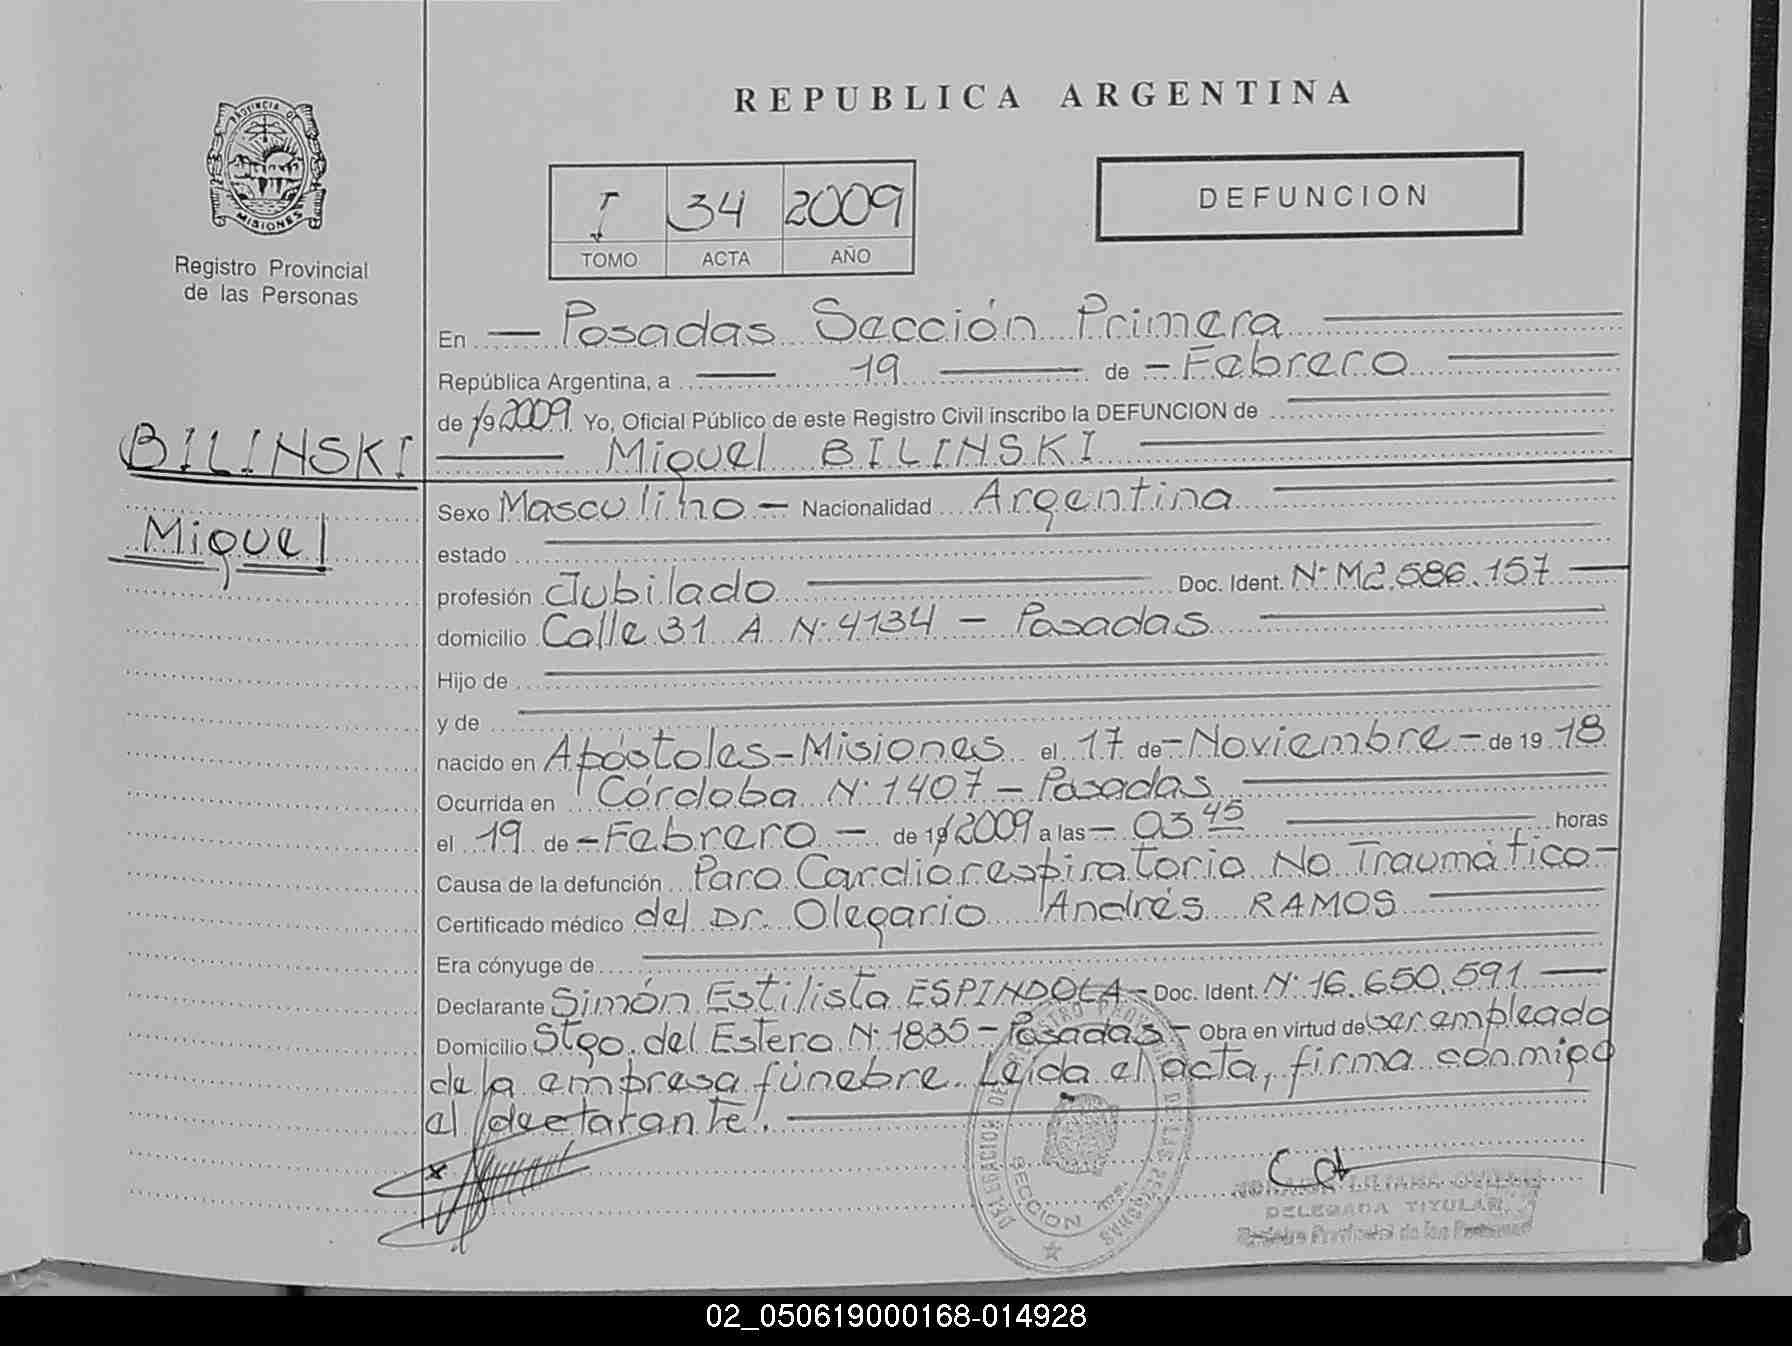 REPUBLICA ARGENTINA
PROVINCIA DE
MISIONES
Registro Provincial
de las Personas
I 34 2009
TOMO ACTA AÑO
DEFUNCION
En Posadas Sección Primera
República Argentina, a 19 de Febrero
de 19 2009 Yo, Oficial Público de este Registro Civil inscribo la DEFUNCION de
BILINSKI
Miguel BILINSKI
Miguel
Sexo Masculino Nacionalidad Argentina
estado
profesión Jubilado Doc. Ident. Nº M2.586.157
domicilio Calle 31 A Nº 4134 - Posadas
Hijo de
y de
nacido en Apóstoles - Misiones el 17 de Noviembre de 19 18
Ocurrida en Córdoba Nº 1407 - Posadas
el 19 de Febrero de 19 2009 a las 03 45 horas
Causa de la defunción Paro Cardiorespiratorio No Traumático
Certificado médico del Dr. Olegario Andrés RAMOS
Era cónyuge de
Declarante Simón Estilista ESPINDOLA Doc. Ident. Nº 16.650.591
Domicilio Stgo. del Estero Nº 1835 - Posadas - Obra en virtud de ser empleado
de la empresa fúnebre. Leída el acta, firma conmigo
el declarante.
SECCION 1ra.
LILIANA
DELEGADA TITULAR
Registro Provincial de las Personas
02_050619000168-014928